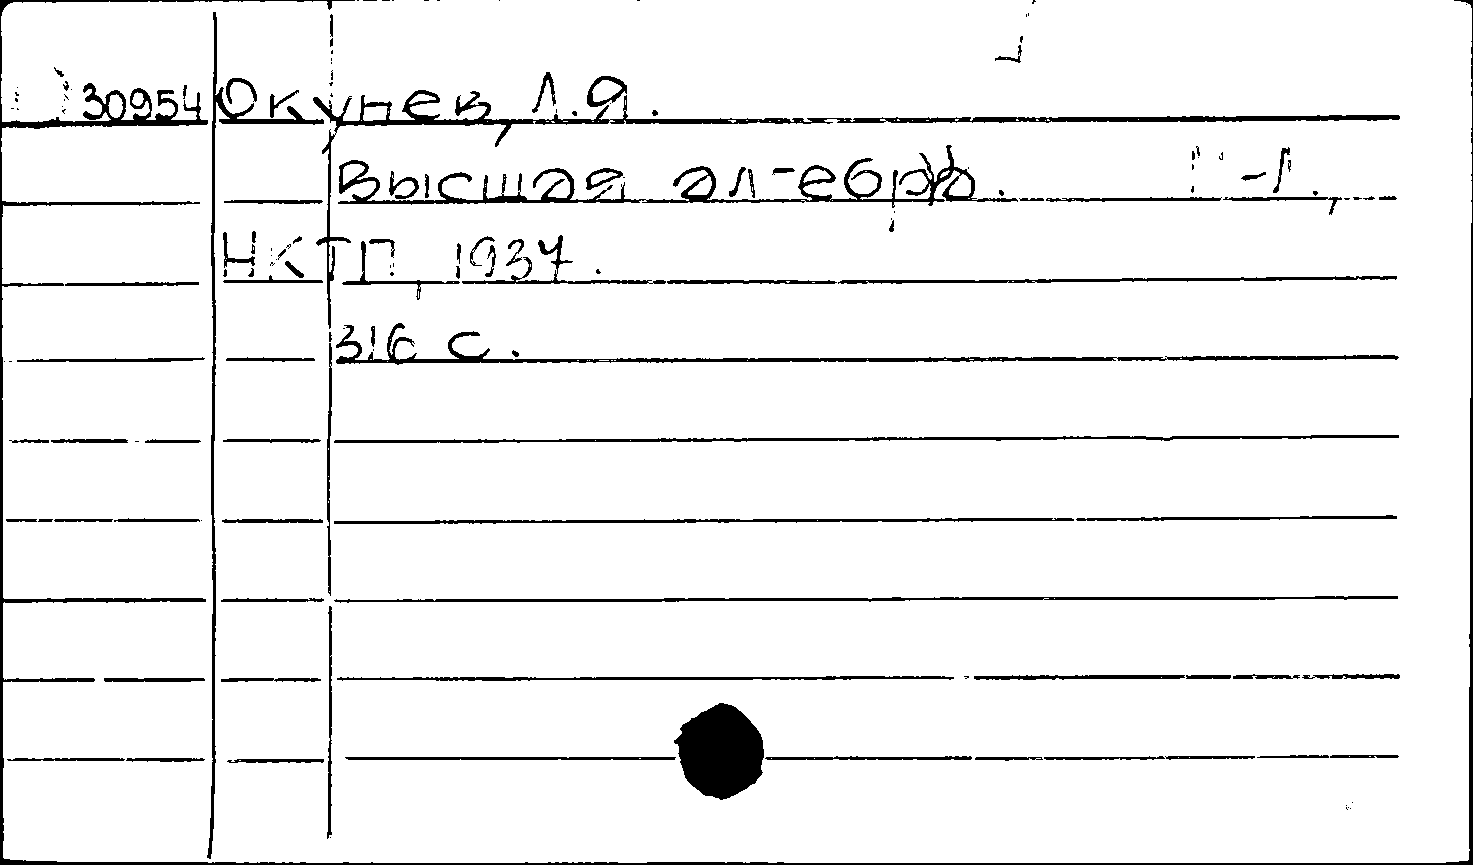 30954 Окунев, Л.Я.
Высшая алгебра. М.-Л.,
НКТП, 1937.
316 с.